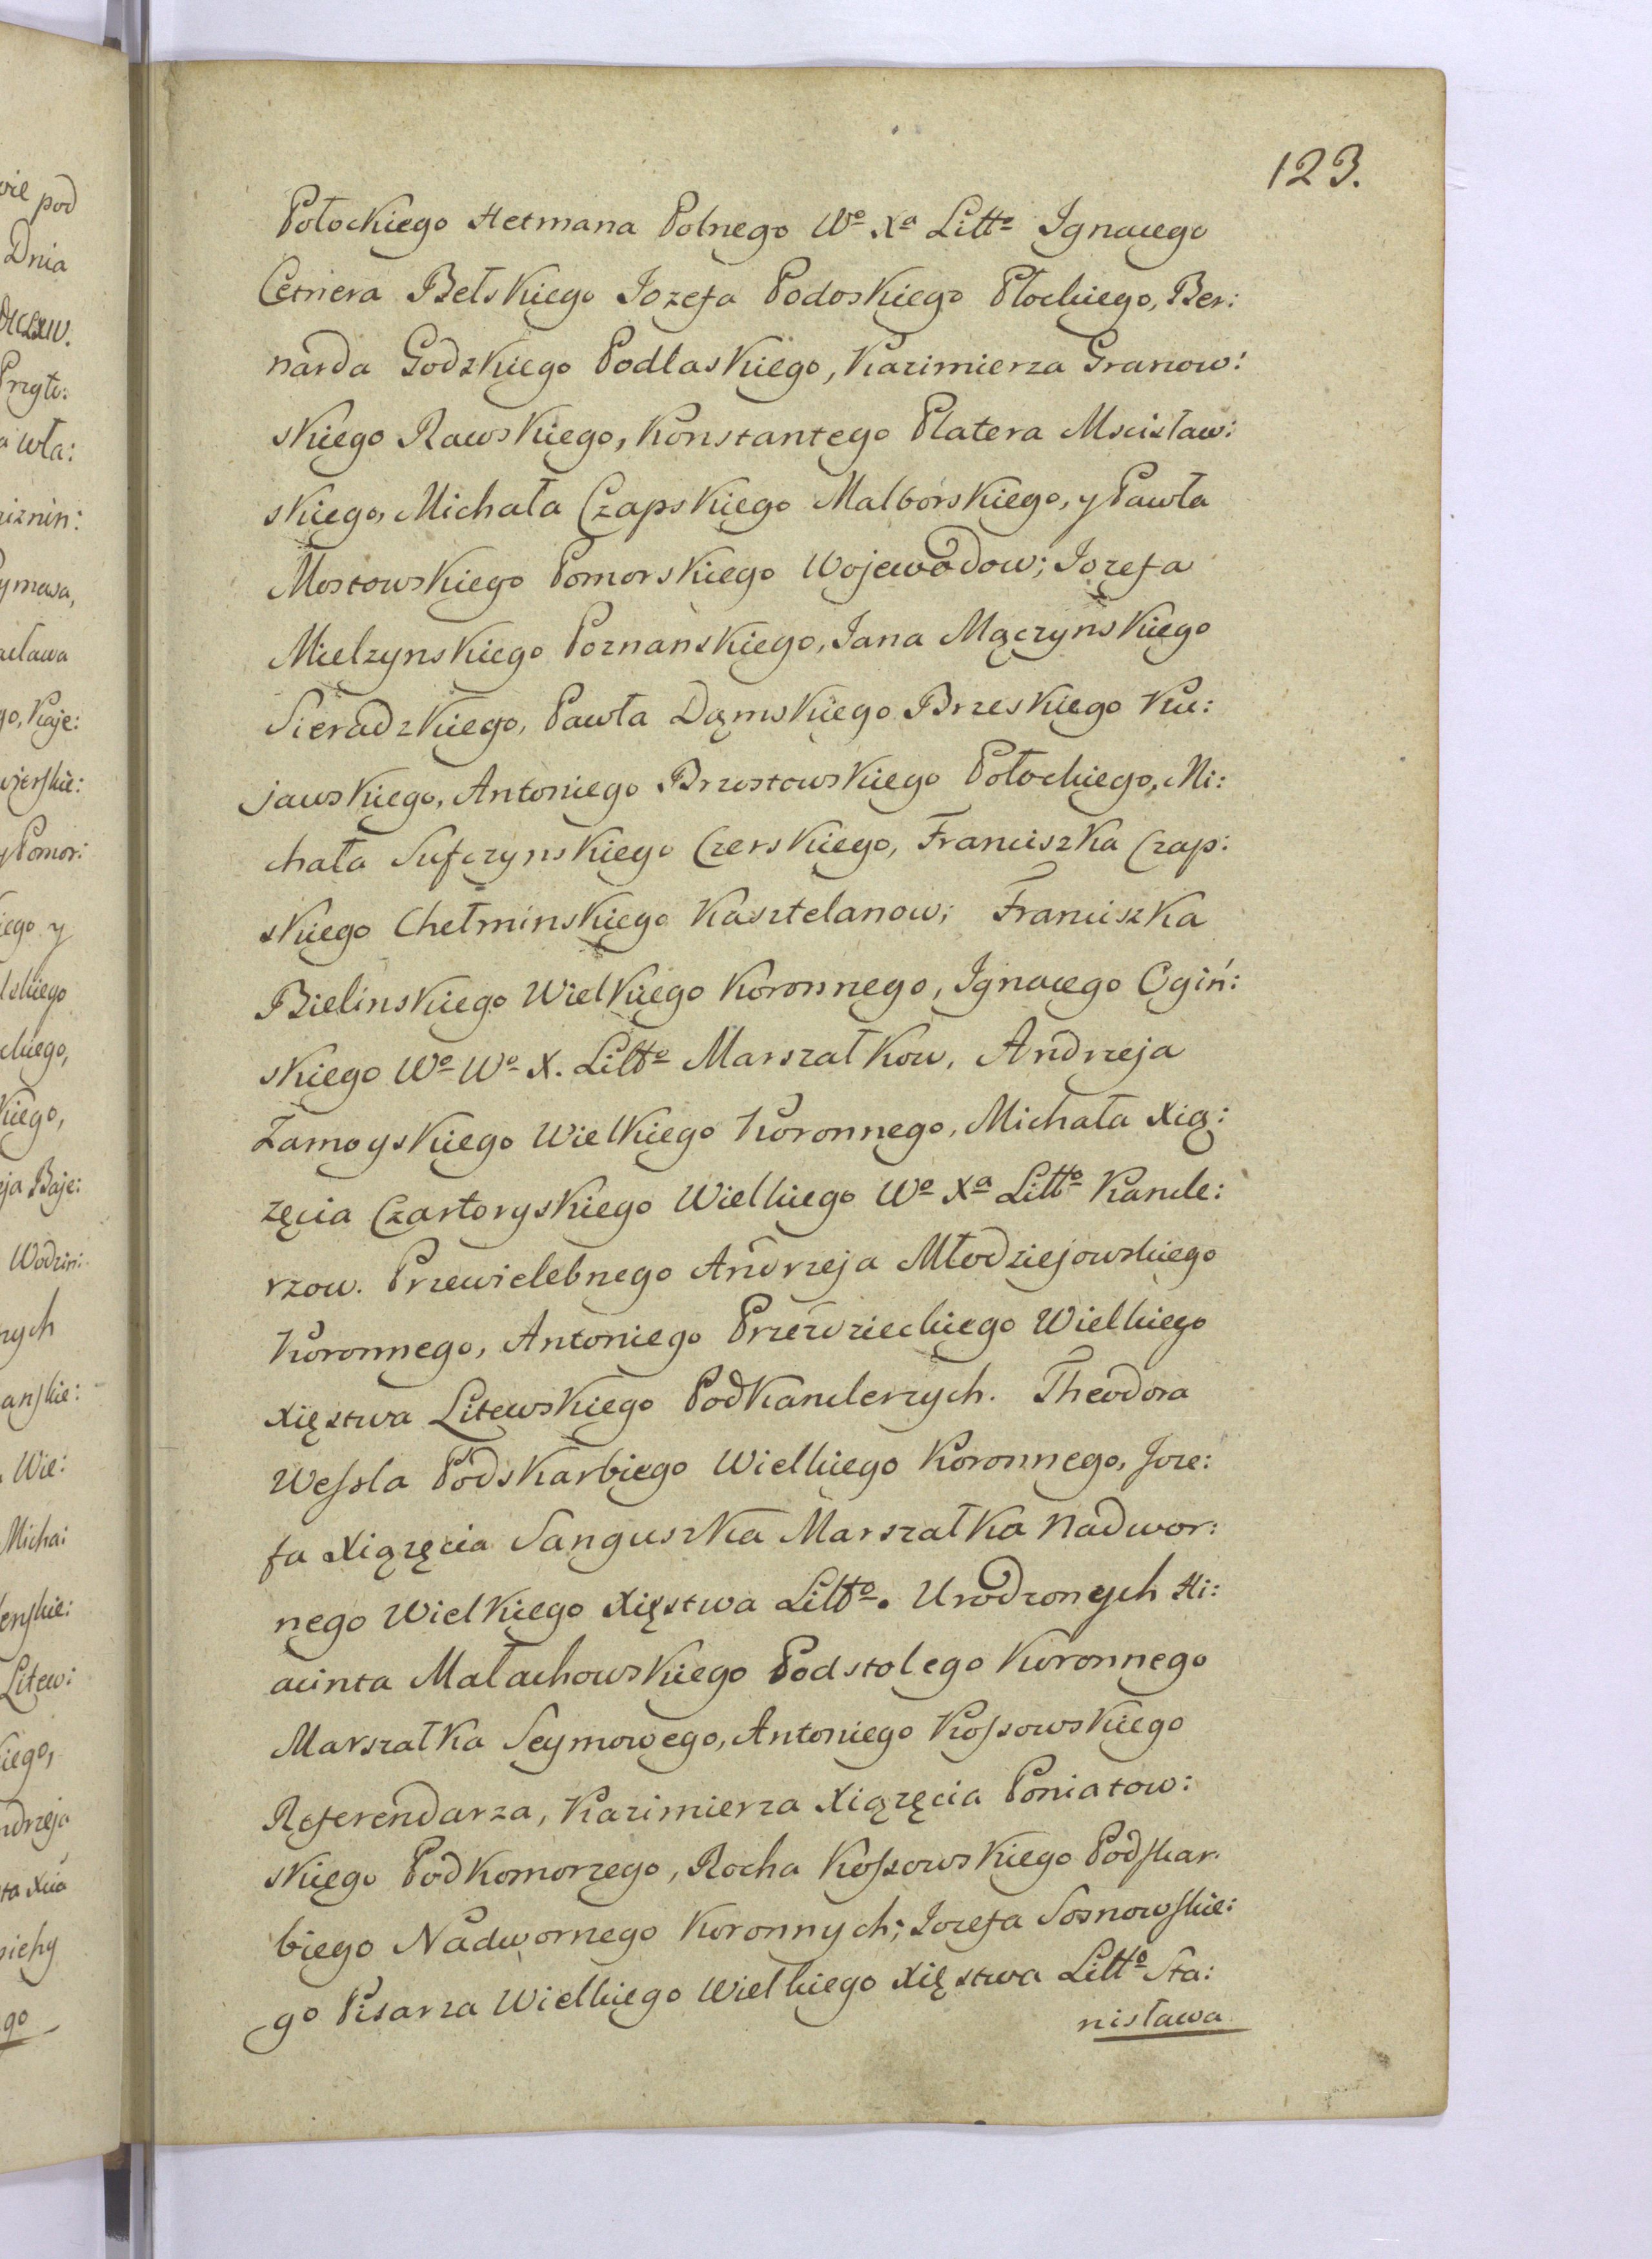 123.
Połockiego Hetmana Polnego Wo Xa Litto Ignacego
Cetnera Bełskiego Jozefa Podoskiego Płockiego, Ber:
narda Godzkiego Podlaskiego, Kazimierza Granow:
skiego Rawskiego, Konstantego Platera Mscisław:
skiego, Michała Czapskiego Malborskiego, y Pawła
Mostowskiego Pomorskiego Wojewodow; Jozefa
Mielzynskiego Poznanskiego, Jana Mączynskiego
Sieradzkiego, Pawła Dąmskiego Brzeskiego Ku:
jawskiego, Antoniego Brzostowskiego Połockiego, Mi:
chała Sufczynskiego Czerskiego, Franciszka Czap:
skiego Chełminskiego Kasztelanow; Franciszka
Bielinskiego Wielkiego Koronnego, Ignacego Ogiń:
skiego Wo Wo X. Litto Marszałkow, Andrzeja
Zamoyskiego Wielkiego Koronnego, Michała Xią:
zęcia Czartoryskiego Wielkiego Wo Xa Litto Kancle:
rzow. Przewielebnego Andrzeja Młodziejowskiego
Koronnego, Antoniego Przezdzieckiego Wielkiego
Xięstwa Litewskiego Podkanclerzych. Theodora
Wessla Podskarbiego Wielkiego Koronnego, Joze:
fa Xiązęcia Sanguszka Marszałka Nadwor:
nego Wielkiego Xięstwa Litto. Urodzonych Hi:
acinta Małachowskiego Podstolego Koronnego
Marszałka Seymowego, Antoniego Kossowskiego
Referendarza, Kazimierza Xiązęcia Poniatow:
skiego Podkomorzego, Rocha Kossowskiego Podskar:
biego Nadwornego Koronnych; Jozefa Sosnowskie:
go Pisarza Wielkiego Wielkiego Xięstwa Litto Sta:
nisława